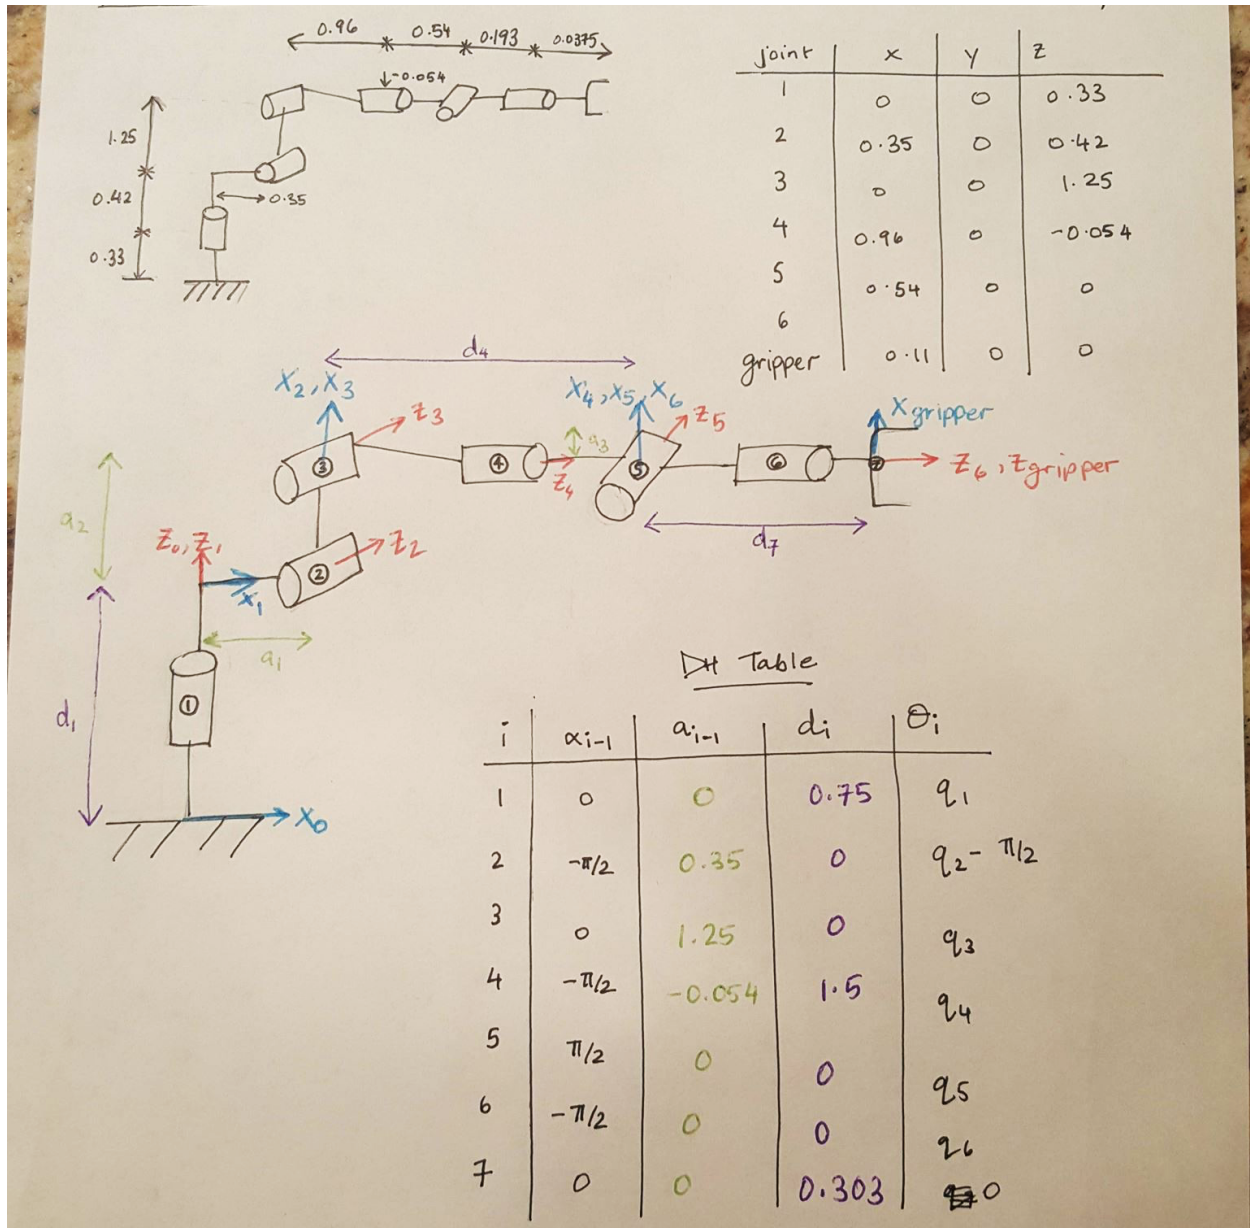 0.96 0.54 0.193 0.0375
-0.054
1.25
0.42
0.35
0.33
joint x y z
1 0 0 0.33
2 0.35 0 0.42
3 0 0 1.25
4 0.96 0 -0.054
5 0.54 0 0
6
gripper 0.11 0 0
d4
X2, X3 Z3
X4, X5, X6 Z5
Xgripper
a3
③ ④ ⑤ ⑥ ⑦
Z4
Z6, Zgripper
a2
d7
Z0, Z1 Z2
②
X1
a1
①
d1
X0
DH Table
i αi-1 ai-1 di θi
1 0 0 0.75 q1
2 -π/2 0.35 0 q2 - π/2
3 0 1.25 0 q3
4 -π/2 -0.054 1.5 q4
5 π/2 0 0 q5
6 -π/2 0 0 q6
7 0 0 0.303 0